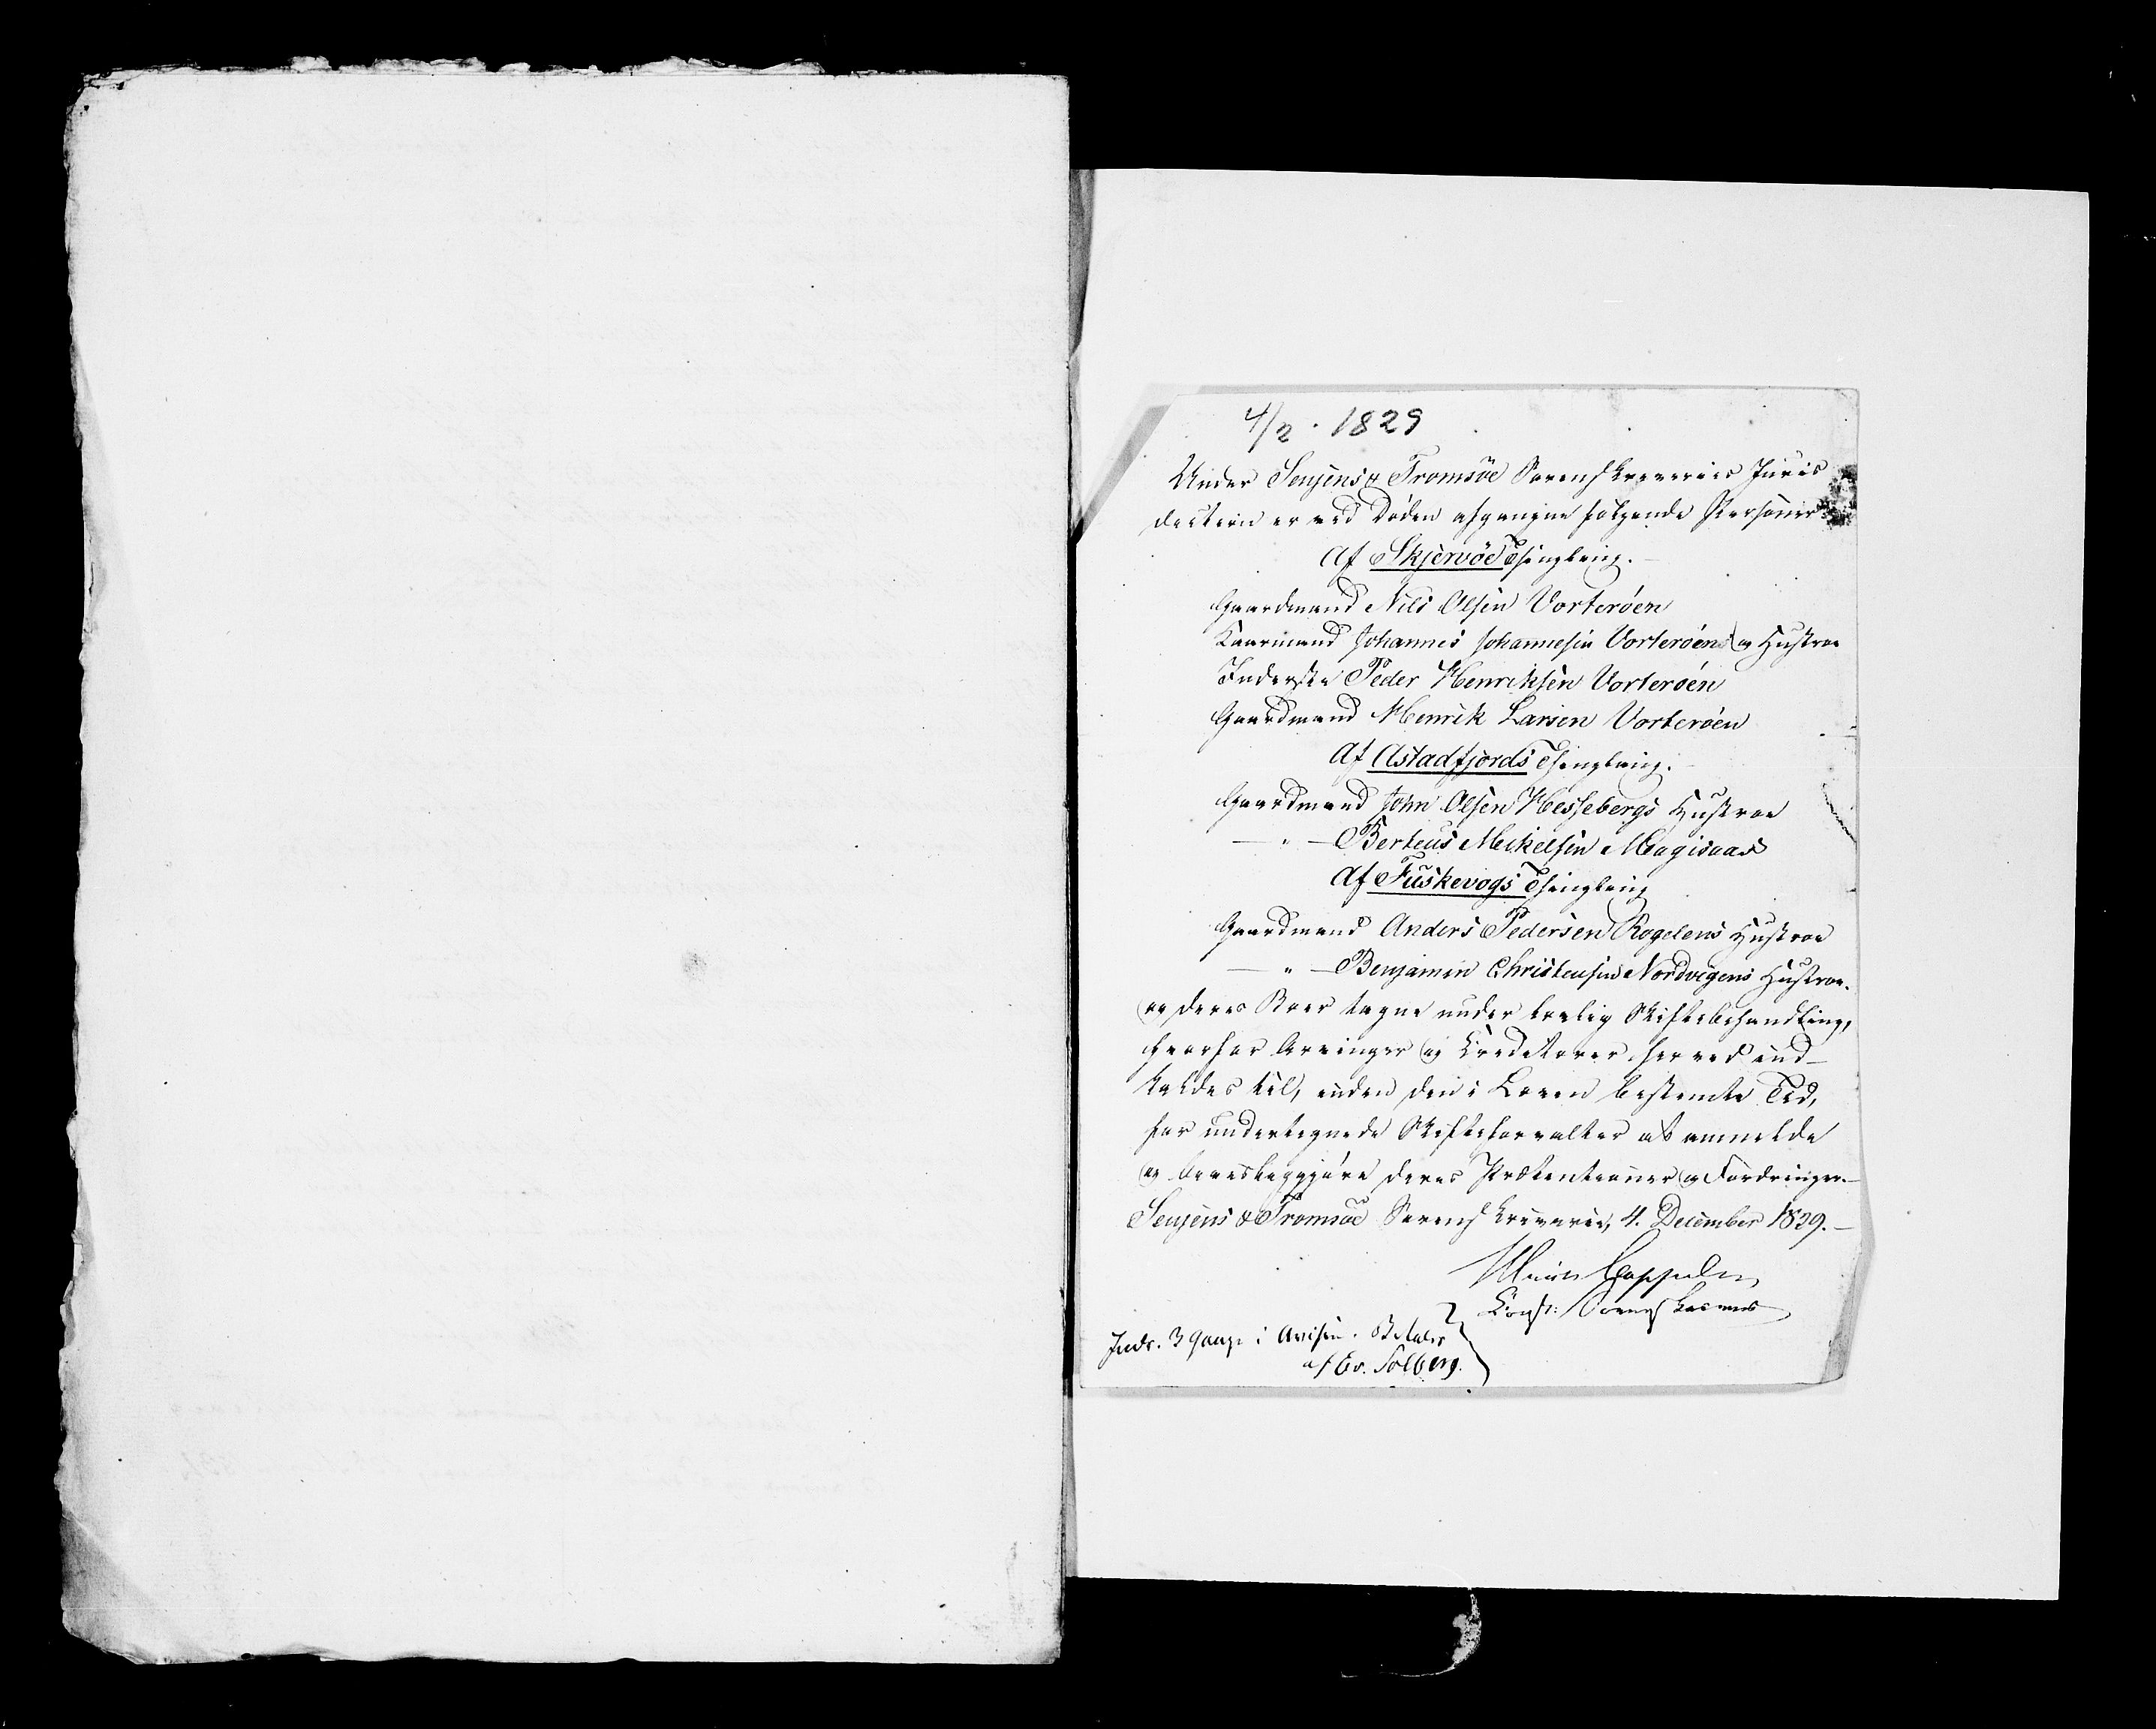 4/2. 1829
Under Senjens & Tromsöe Sorenskriveries Juris
diction er ved Döden afgangne fölgende Personer
Af Skjervöe Thinglaug.
Gaardmand Nils Olsen Vorteröen
Kaarmand Johannes Johannesen Vorteröens og Hustroe
Inderste Peder Henriksen Vorteröen
Gaardmand Henrik Larsen Vorteröen
Af Astadfjords Thinglaug.
Gaardmand John Olsen Hessebergs Hustroe
— " — Berteus Mekelsen
Af Tuskevogs Thinglaug
Gaardmand Anders Pedersen Rogelens Hustroe
— " — Benjamin Christensens Nordvigens Hustroe.
og deres Boer tagne under lovlig Skiftebehandling,
hvorfor Arvinger og Creditorer herved ind-
kaldes til, inden den i Loven bestemte Tid,
for undertegnede Skifteforvalter at anmelde
og beviisliggjöre deres Prætentioner og Fordringer.—
Senjens & Tromsöe Sorenskriverie, 4. December 1829.—
Cappelen
Const: Sorenskriver
Indr. 3 Gange i Avisen. Betales
af Ev. Solberg.